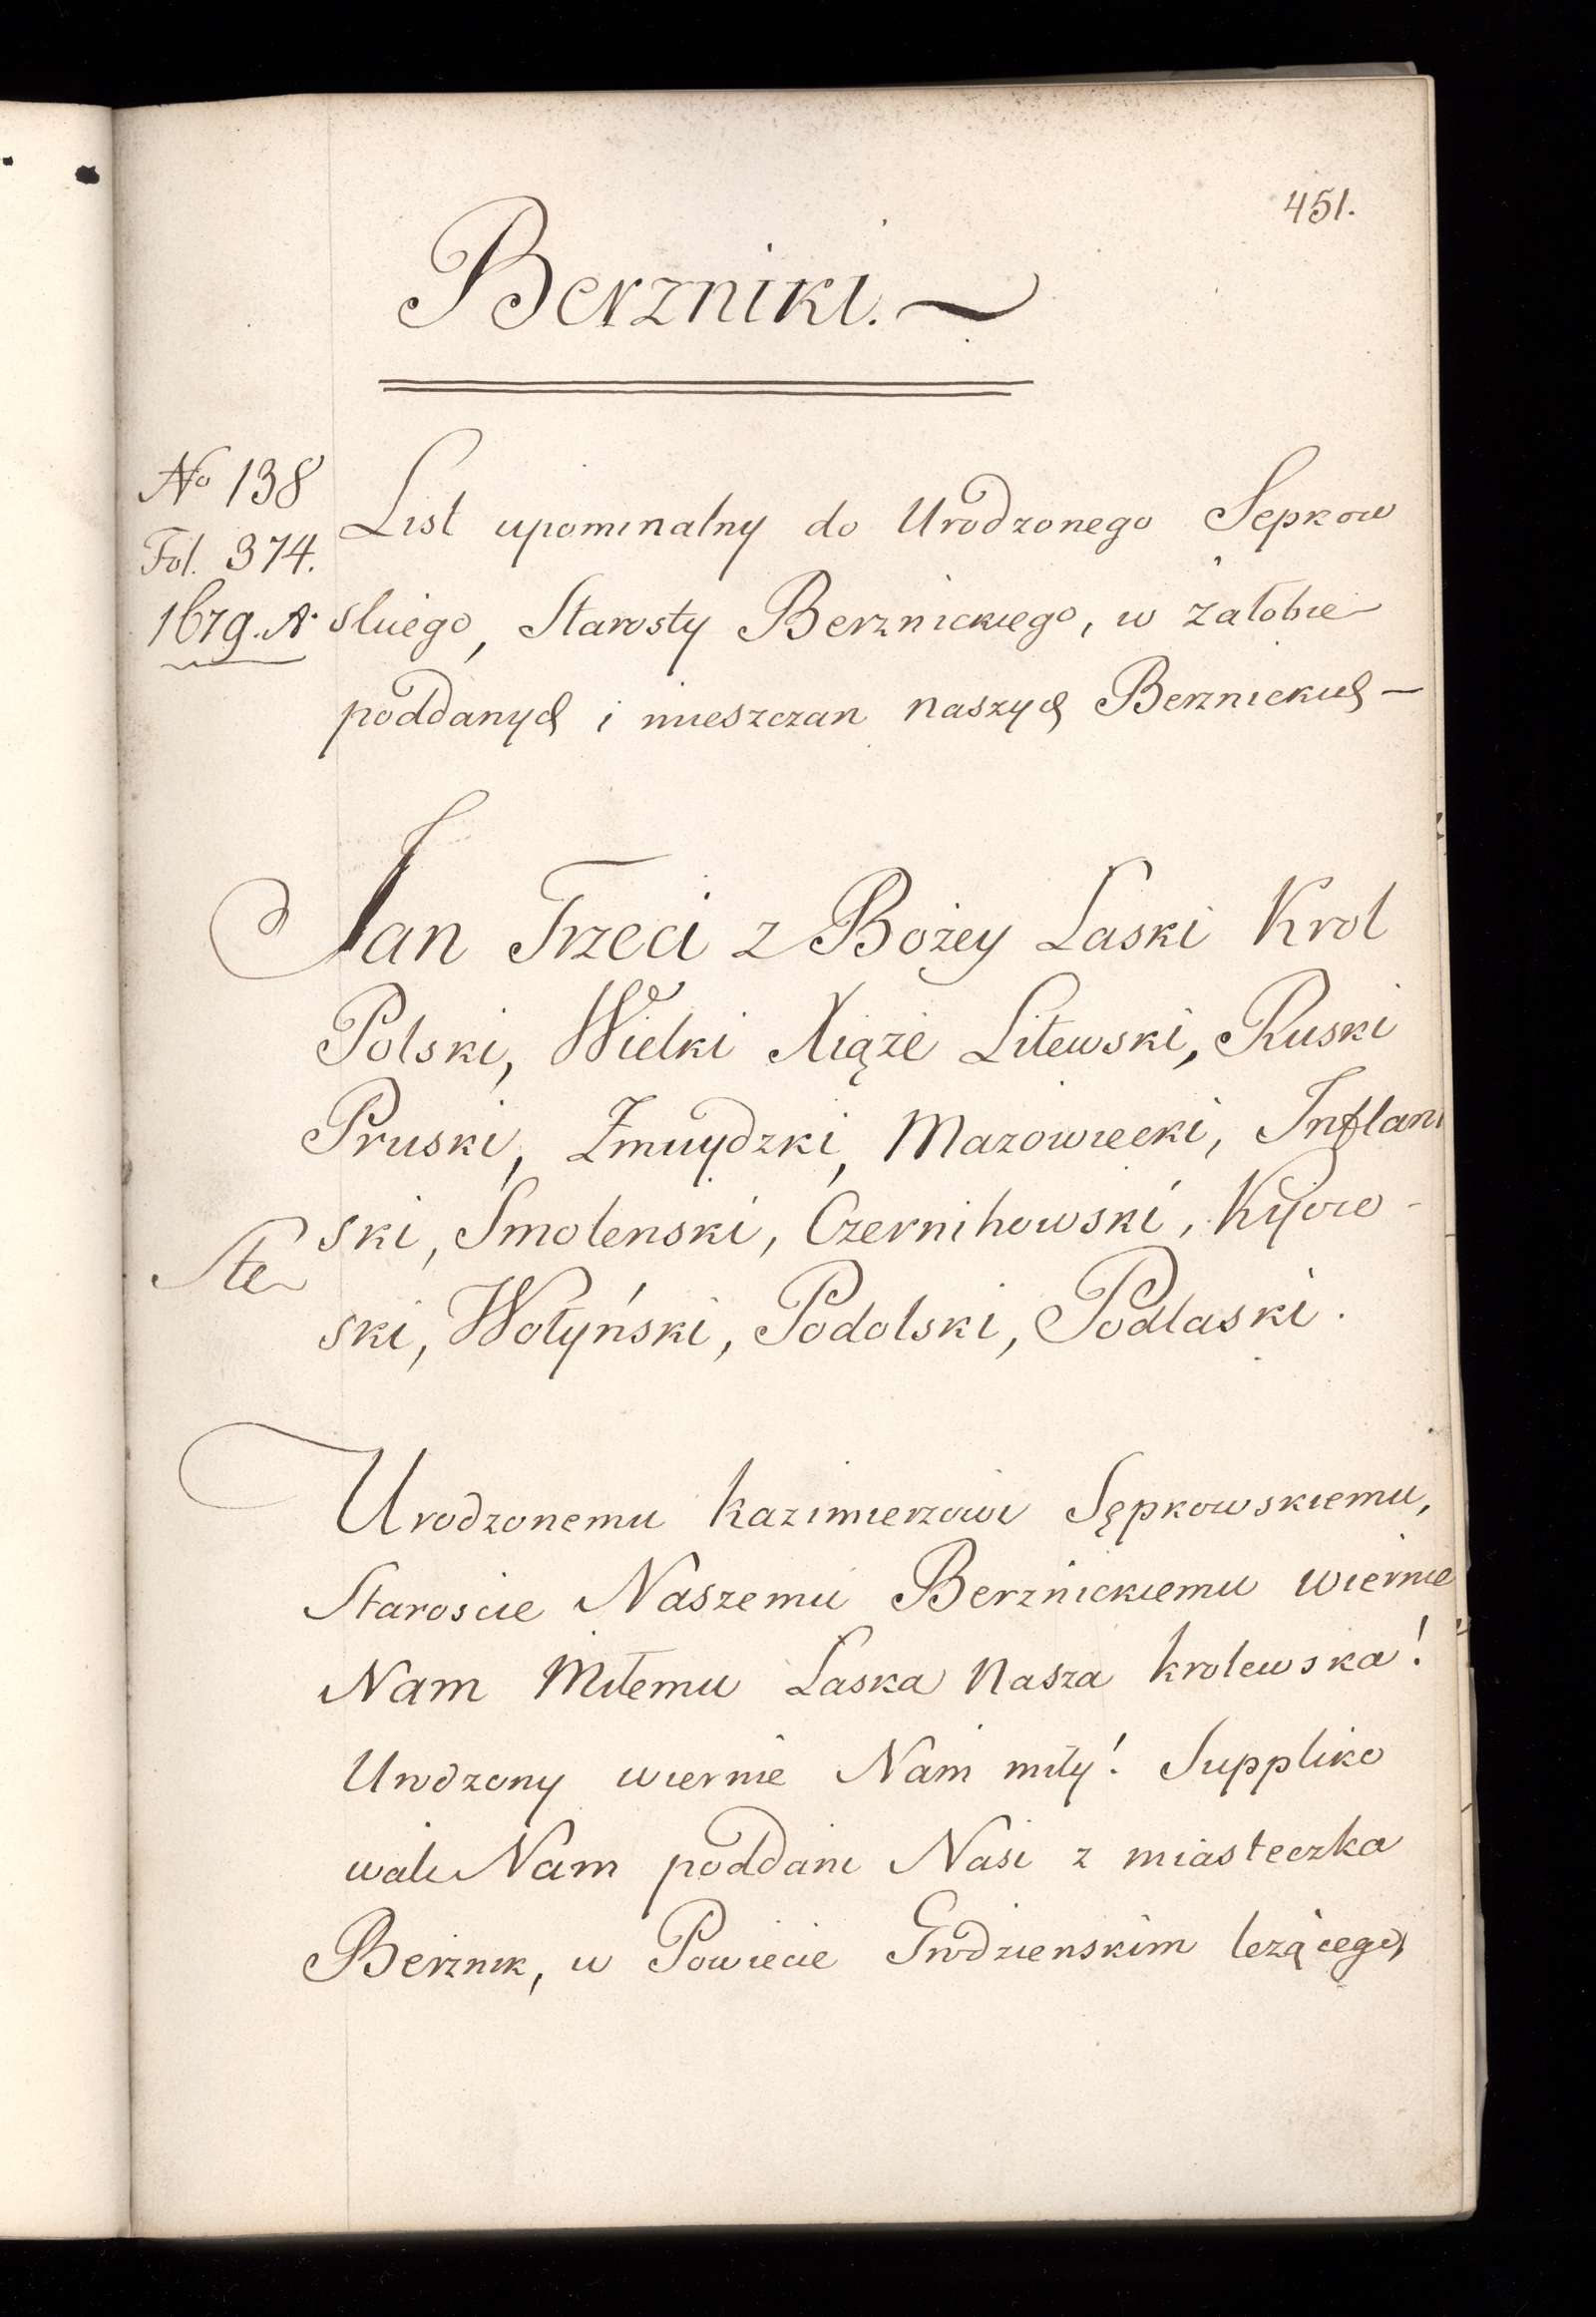 451.
Berzniki.
No 138
Fol. 374.
1679. A.
List upominalny do Urodzonego Sepkow
skiego, Starosty Berznickiego, w żałobie
poddanych i mieszczan naszych Berznickich
Jan Trzeci z Bożey Laski Krol
Polski, Wielki Xiąże Litewski, Ruski
Pruski, Zmuydzki, Mazowiecki, Inflan
ski, Smolenski, Czernihowski, Kyiow-
ski, Wołyński, Podolski, Podlaski.
Urodzonemu Kazimierzowi Sępkowskiemu,
Staroscie Naszemu Berznickiemu wiernie
Nam Miłemu Laska Nasza krolewska!
Urodzony wiernie Nam miły! Suppliko
wali Nam poddani Nasi z miasteczka
Berznik, w Powiecie Grodzienskim leżącego,